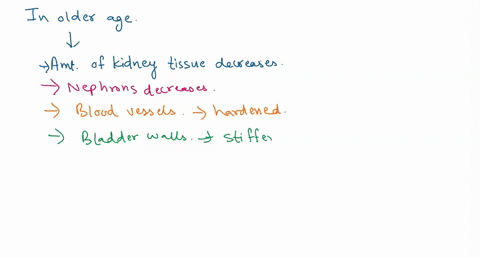 In older age.
↓
→ Amt. of kidney tissue decreases.
→ Nephrons decreases.
→ Blood vessels. → hardened.
→ Bladder walls. → stiffer